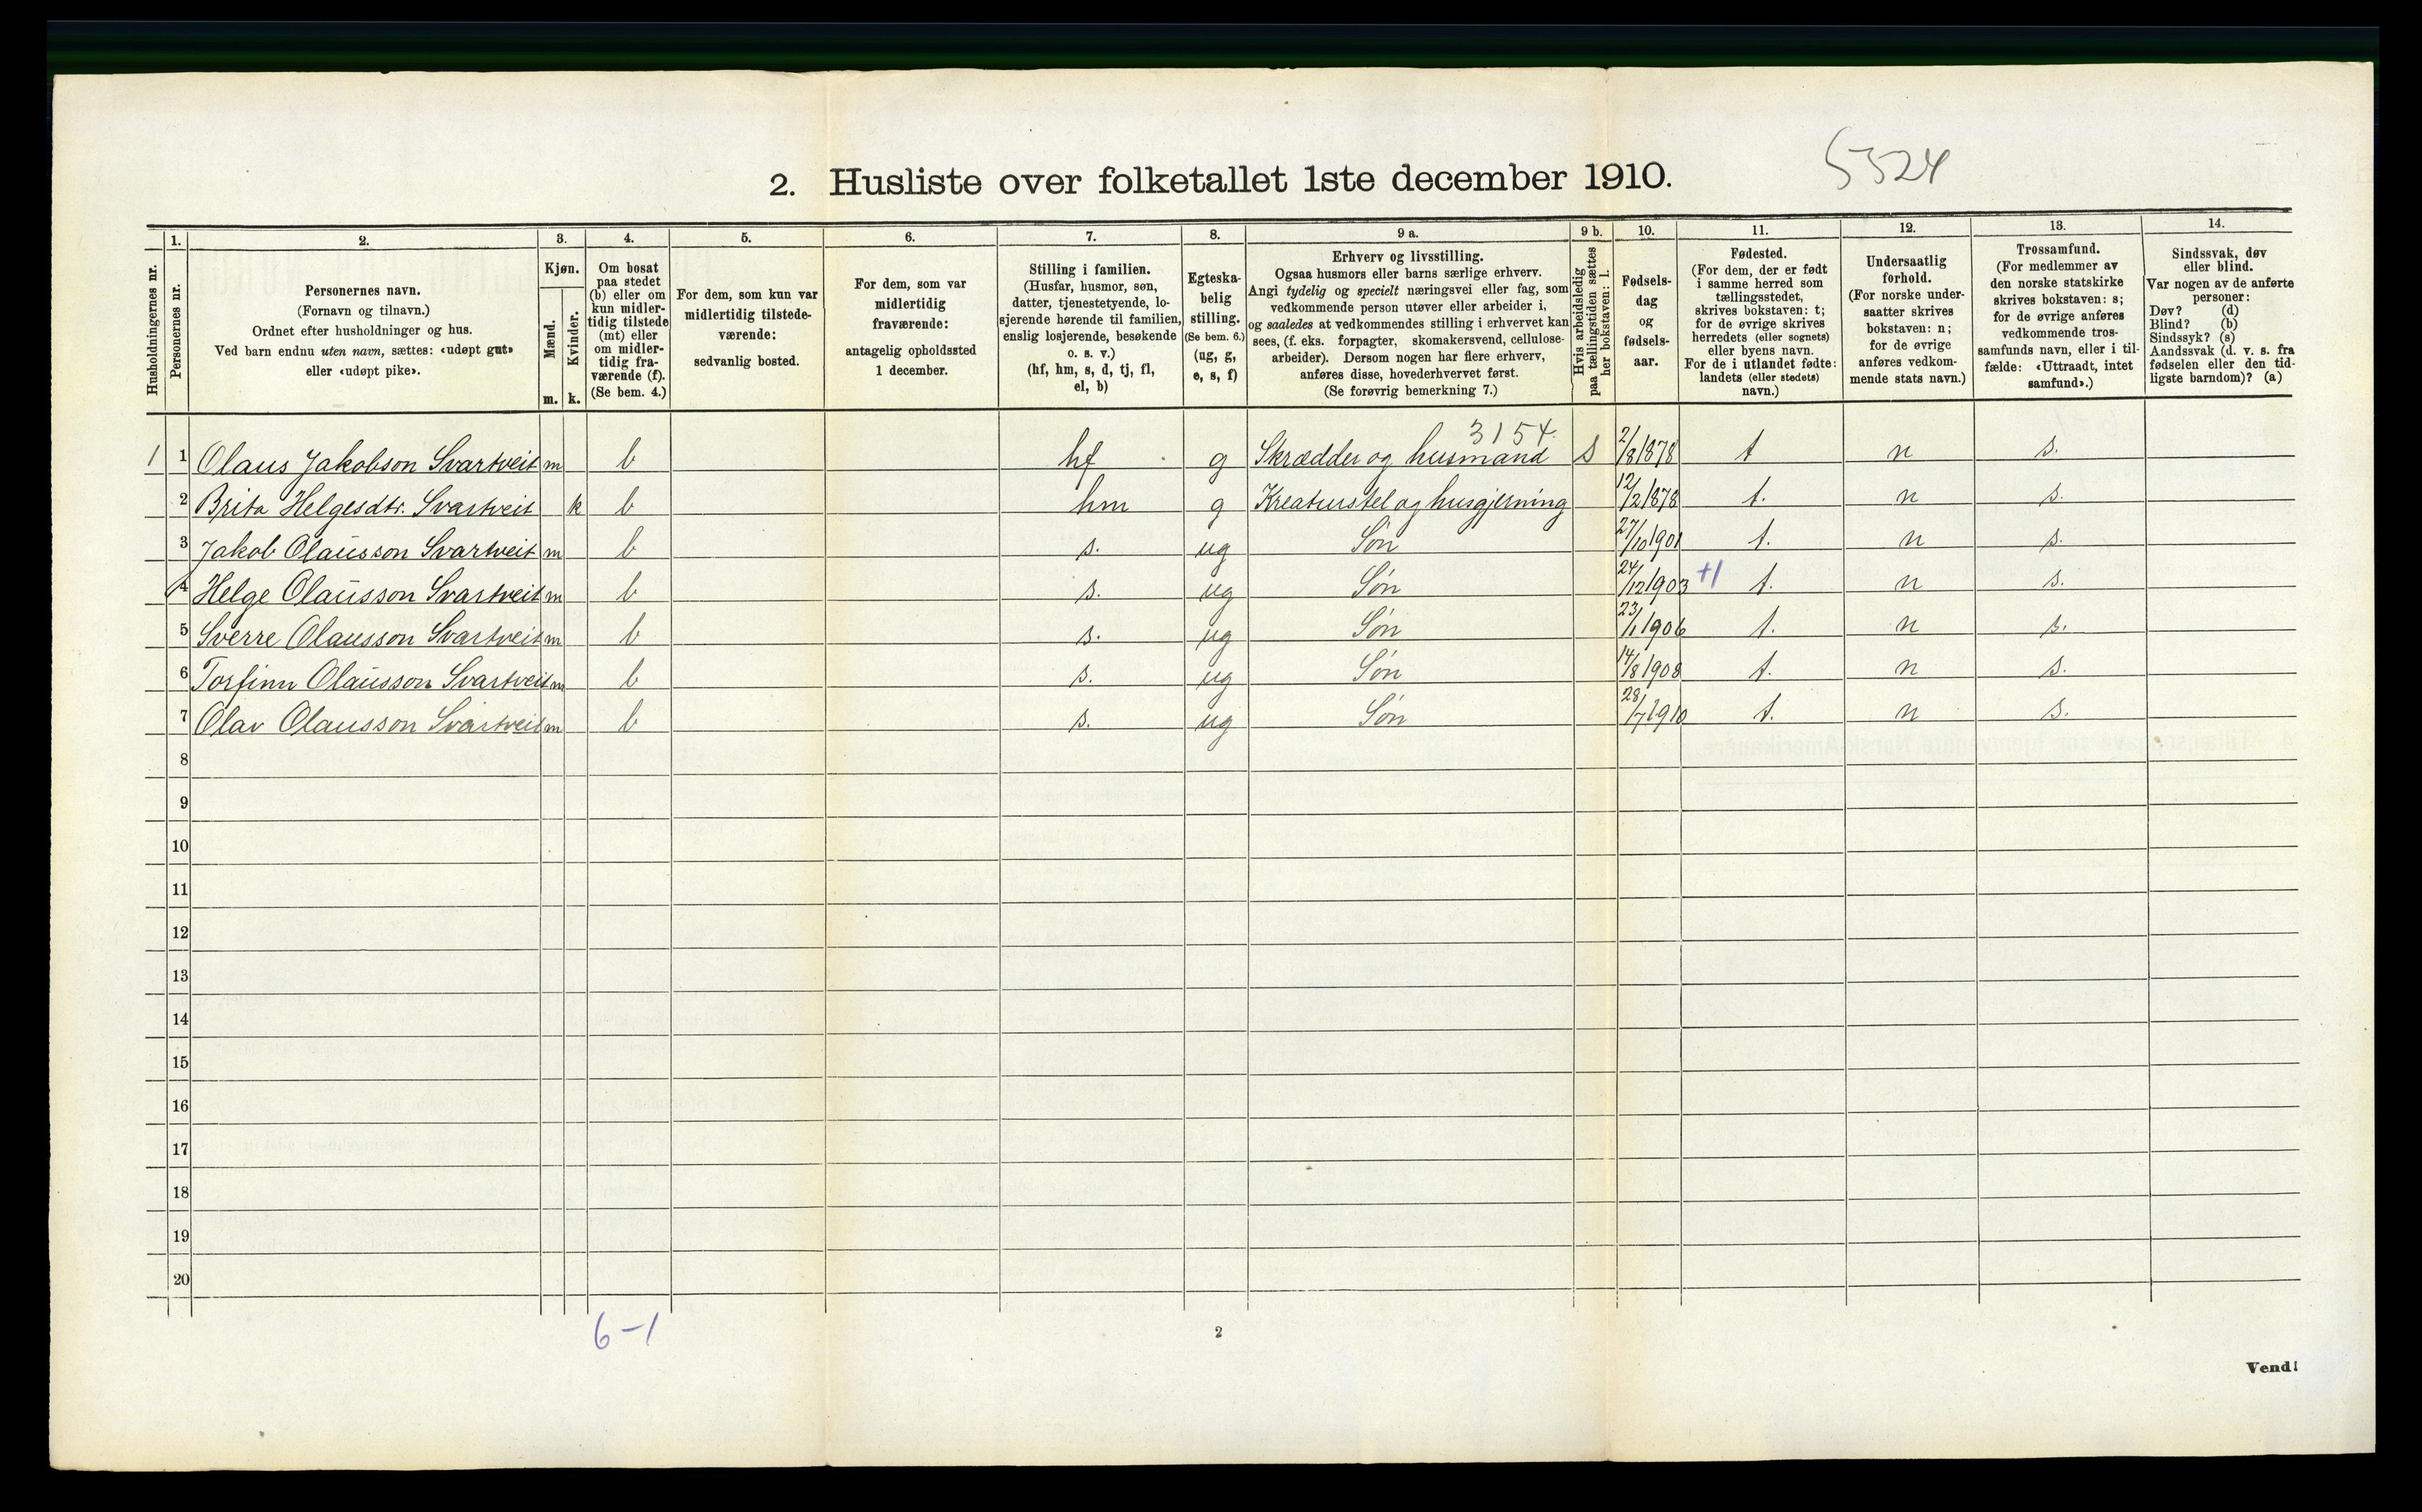 2. Husliste over folketallet 1ste december 1910.
5524
1.
2.
3.
4.
5.
6.
7.
8.
9 a.
9 b.
10.
11.
12.
13.
14.
Husholdningernes nr.
Personernes nr.
Personernes navn.
(Fornavn og tilnavn.)
Ordnet efter husholdninger og hus.
Ved barn endnu uten navn, sættes: «udøpt gut»
eller «udøpt pike».
Kjøn.
Mænd.
m.
Kvinder.
k.
Om bosat
paa stedet
(b) eller om
kun midler-
tidig tilstede
(mt) eller
om midler-
tidig fra-
værende (f).
(Se bem. 4.)
For dem, som kun var
midlertidig tilstede-
værende:
sedvanlig bosted.
For dem, som var
midlertidig
fraværende:
antagelig opholdssted
1 december.
Stilling i familien.
(Husfar, husmor, søn,
datter, tjenestetyende, lo-
sjerende hørende til familien,
enslig losjerende, besøkende
o. s. v.)
(hf, hm, s, d, tj, fl,
el, b)
Egteska-
belig
stilling.
(Se bem. 6.)
(ug, g,
e, s, f)
Erhverv og livsstilling.
Ogsaa husmors eller barns særlige erhverv.
Angi tydelig og specielt næringsvei eller fag, som
vedkommende person utøver eller arbeider i,
og saaledes at vedkommendes stilling i erhvervet kan
sees, (f. eks. forpagter, skomakersvend, cellulose-
arbeider). Dersom nogen har flere erhverv,
anføres disse, hovederhvervet først.
(Se forøvrig bemerkning 7.)
Hvis arbeidsledig
paa tællingstiden sættes
her bokstaven: l.
Fødsels-
dag
og
fødsels-
aar.
Fødested.
(For dem, der er født
i samme herred som
tællingsstedet,
skrives bokstaven: t;
for de øvrige skrives
herredets (eller sognets)
eller byens navn.
For de i utlandet fødte:
landets (eller stedets)
navn.)
Undersaatlig
forhold.
(For norske under-
saatter skrives
bokstaven: n;
for de øvrige
anføres vedkom-
mende stats navn.)
Trossamfund.
(For medlemmer av
den norske statskirke
skrives bokstaven: s;
for de øvrige anføres
vedkommende tros-
samfunds navn, eller i til-
fælde: «Uttraadt, intet
samfund».)
Sindssvak, døv
eller blind.
Var nogen av de anførte
personer:
Døv? (d)
Blind? (b)
Sindssyk? (s)
Aandssvak (d. v. s. fra
fødselen eller den tid-
ligste barndom)? (a)
3154.
1 1 Olaus Jakobson Svartveit m b hf g Skrædder og husmand s 2/8 1878 t n s.
2 Brita Helgesdtr. Svartveit k b hm g Kreaturstel og husgjerning 12/2 1878 t. n s.
3 Jakob Olausson Svartveit m b s. ug Søn 27/10 1901 t. n s.
4 Helge Olausson Svartveit m b s. ug Søn 24/12 1903 +1 t. n s.
5 Sverre Olausson Svartveit m b s. ug Søn 23/1 1906 t. n s.
6 Torfinn Olausson Svartveit m b s. ug Søn 14/8 1908 t. n s.
7 Olav Olausson Svartveit m b s. ug Søn 28/7 1910 t. n s.
8
9
10
11
12
13
14
15
16
17
18
19
20
6-1
2
Vend!